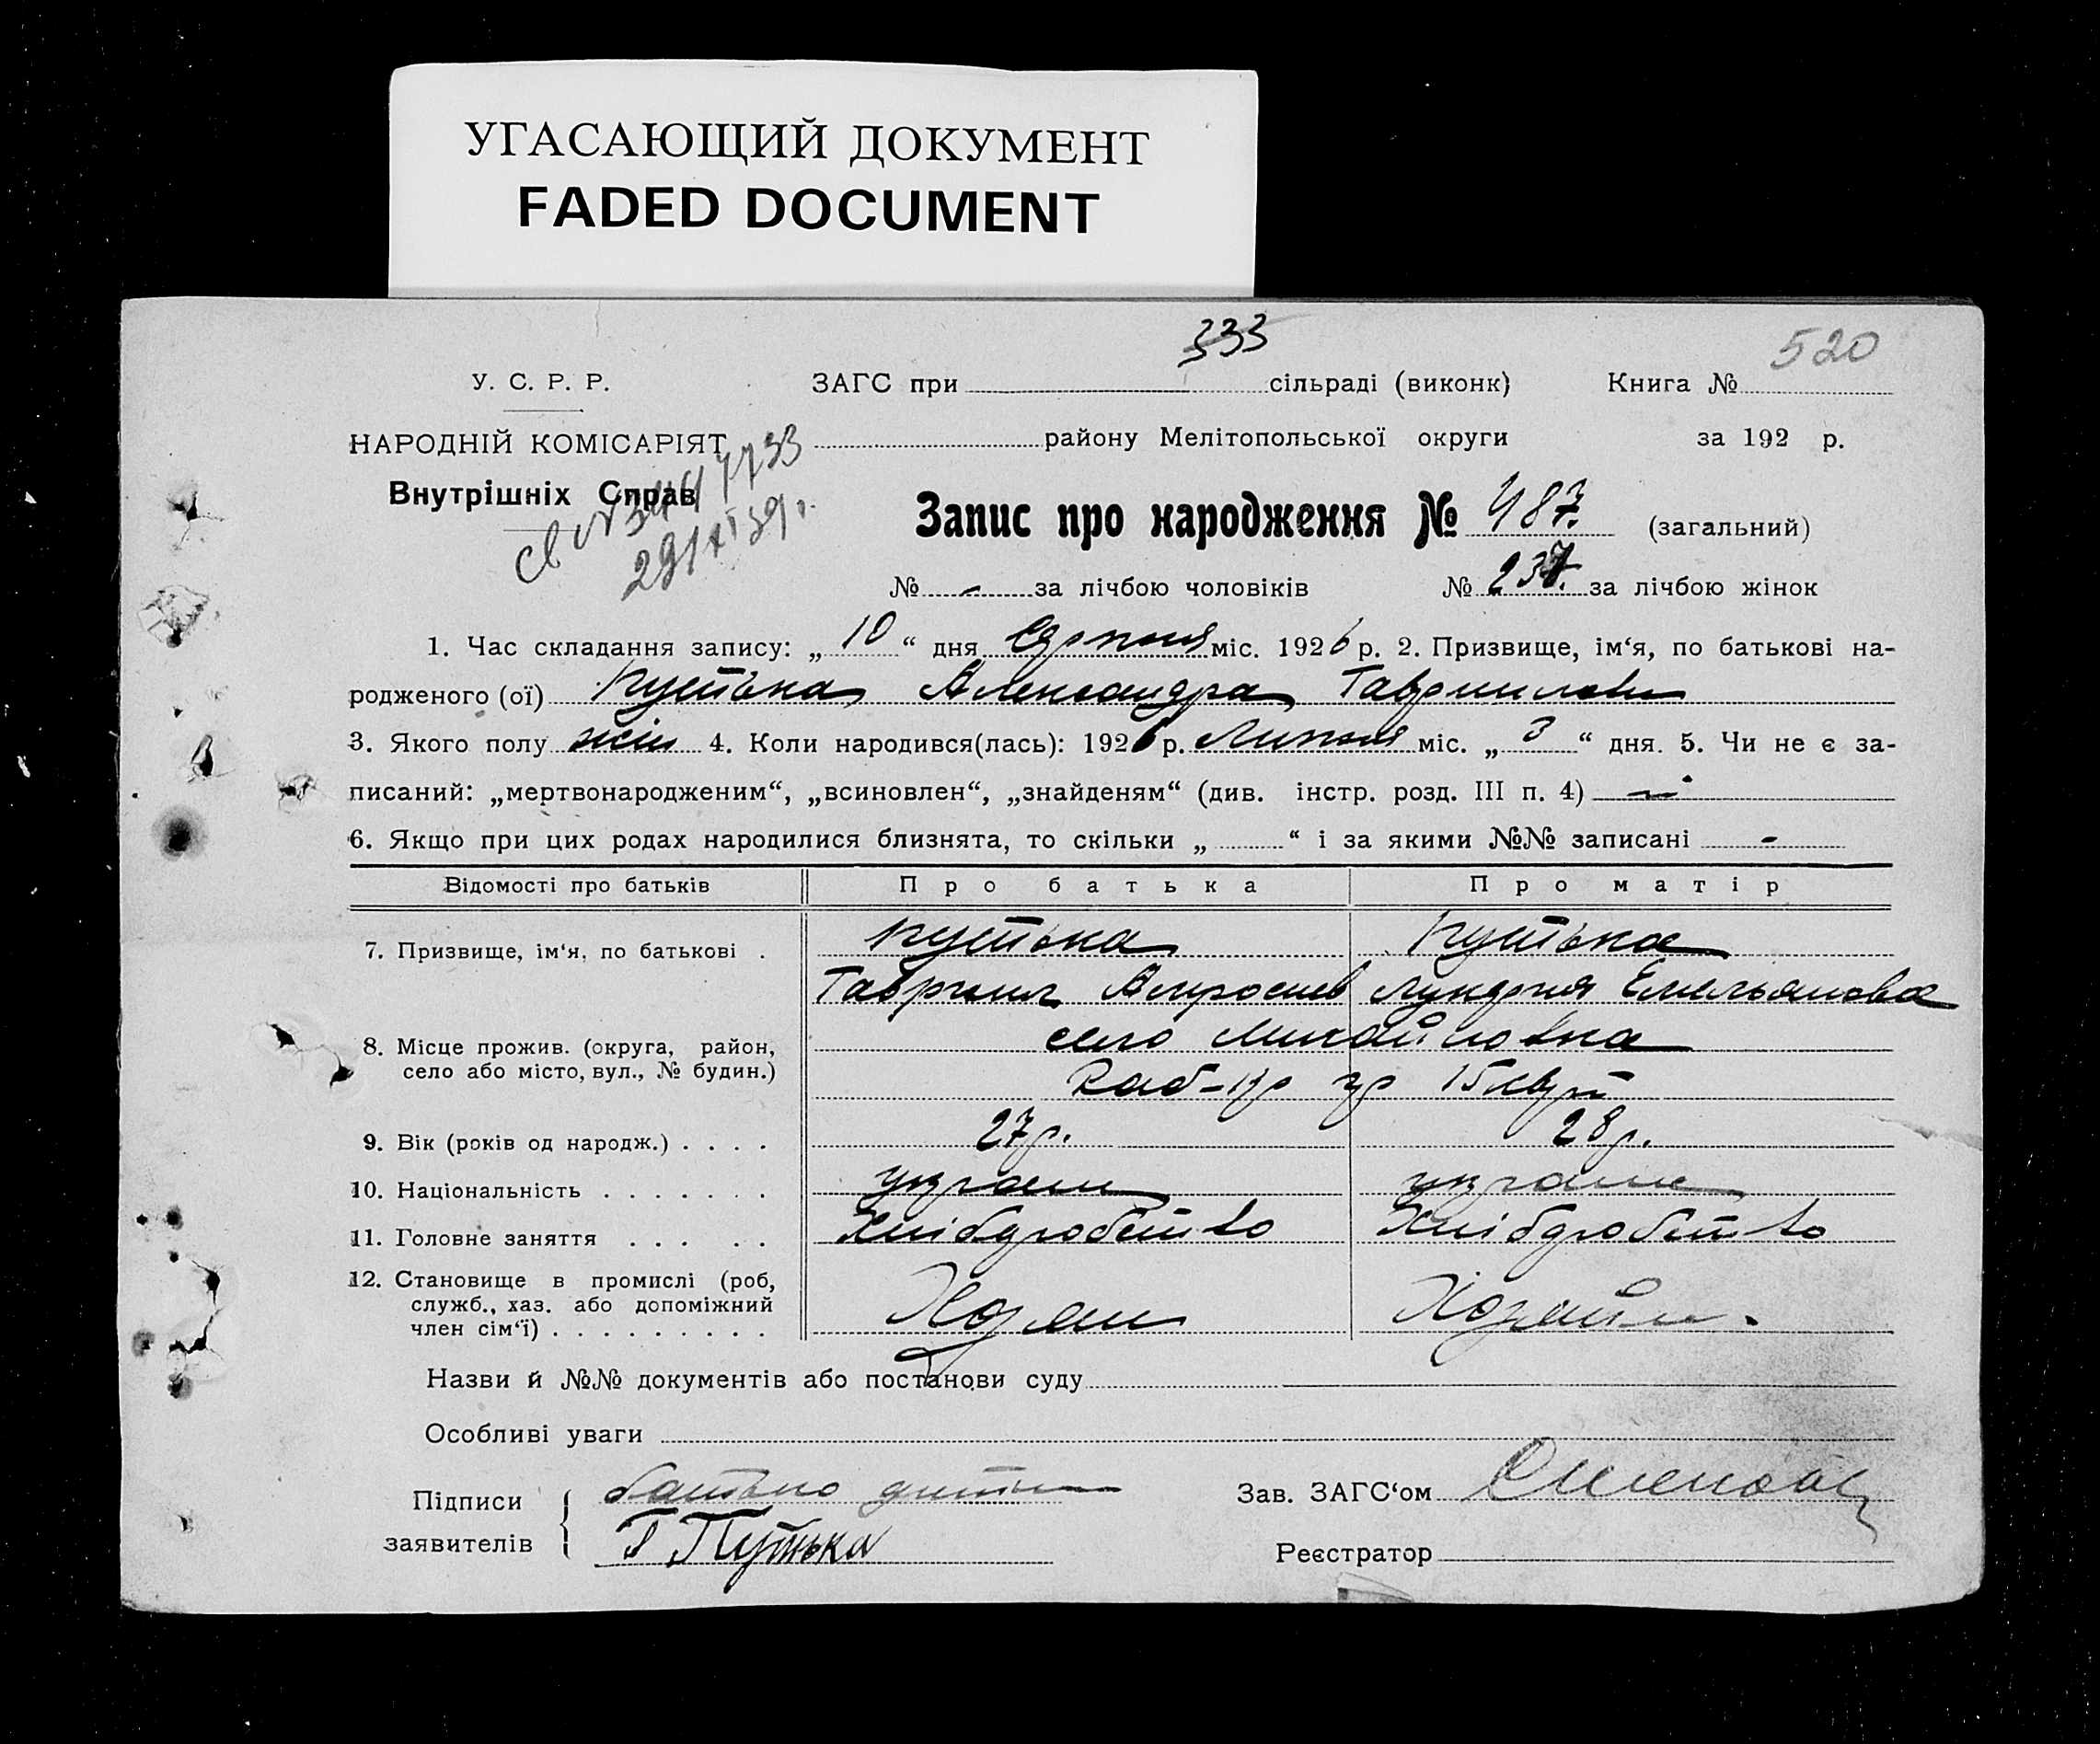 УГАСАЮЩИЙ ДОКУМЕНТ
FADED DOCUMENT
333
520
У. С. Р. Р.
ЗАГС при сільраді (виконк) Книга №
НАРОДНІЙ КОМІСАРІЯТ
району Мелітопольської округи за 192 р.
Внутрішніх Справ
Запис про народження № 487. (загальний)
№ - за лічбою чоловіків № 237. за лічбою жінок
1. Час складання запису: „ 10 “ дня Серпня міс. 1926 р. 2. Призвище, ім‘я, по батькові на-
родженого (ої) Пустька Александра Гавриилова
3. Якого полу жін 4. Коли народився(лась): 1926 р. Липня міс. „ 3 “ дня. 5. Чи не є за-
писаний: „мертвонародженим“, „всиновлен“, „знайденям“ (див. інстр. розд. III п. 4)
6. Якщо при цих родах народилися близнята, то скільки „ “ і за якими №№ записані -
Відомості про батьків Про батька Про матір
7. Призвище, ім‘я, по батькові . Пустька Пустька
Гавриил Емельянова
8. Місце прожив. (округа, район,
село або місто, вул., № будин.)
село Михайловка
9. Вік (років од народж.) . . . . 27 р. 28 р.
10. Національність . . . . . . . україн україн
11. Головне заняття . . . . . Хлібдробство Хлібдробство
12. Становище в промислі (роб,
служб., хаз. або допоміжний
член сім‘ї) . . . . . . . . .
Хозяин
Назви й №№ документів або постанови суду
Особливі уваги
Підписи
заявителів
батько дитини
Г Путька
Зав. ЗАГС‘ом
Реєстратор